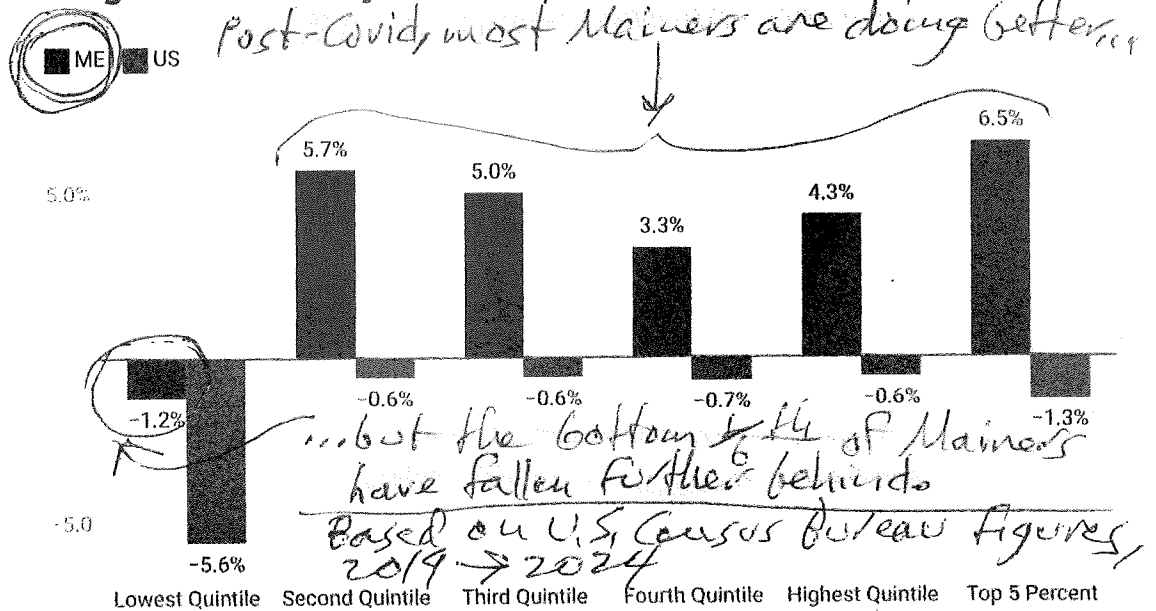 Post-Covid, most Mainers are doing better...
ME US
6.5%
5.7%
5.0%
5.0%
4.3%
3.3%
-1.2%
-0.6%
-0.6%
-0.7%
-0.6%
-1.3%
...but the bottom 1/6 th of Mainers
have fallen further behind.
-5.0
Based on U.S. Census Bureau figures,
2019 → 2024
-5.6%
Lowest Quintile Second Quintile Third Quintile Fourth Quintile Highest Quintile Top 5 Percent